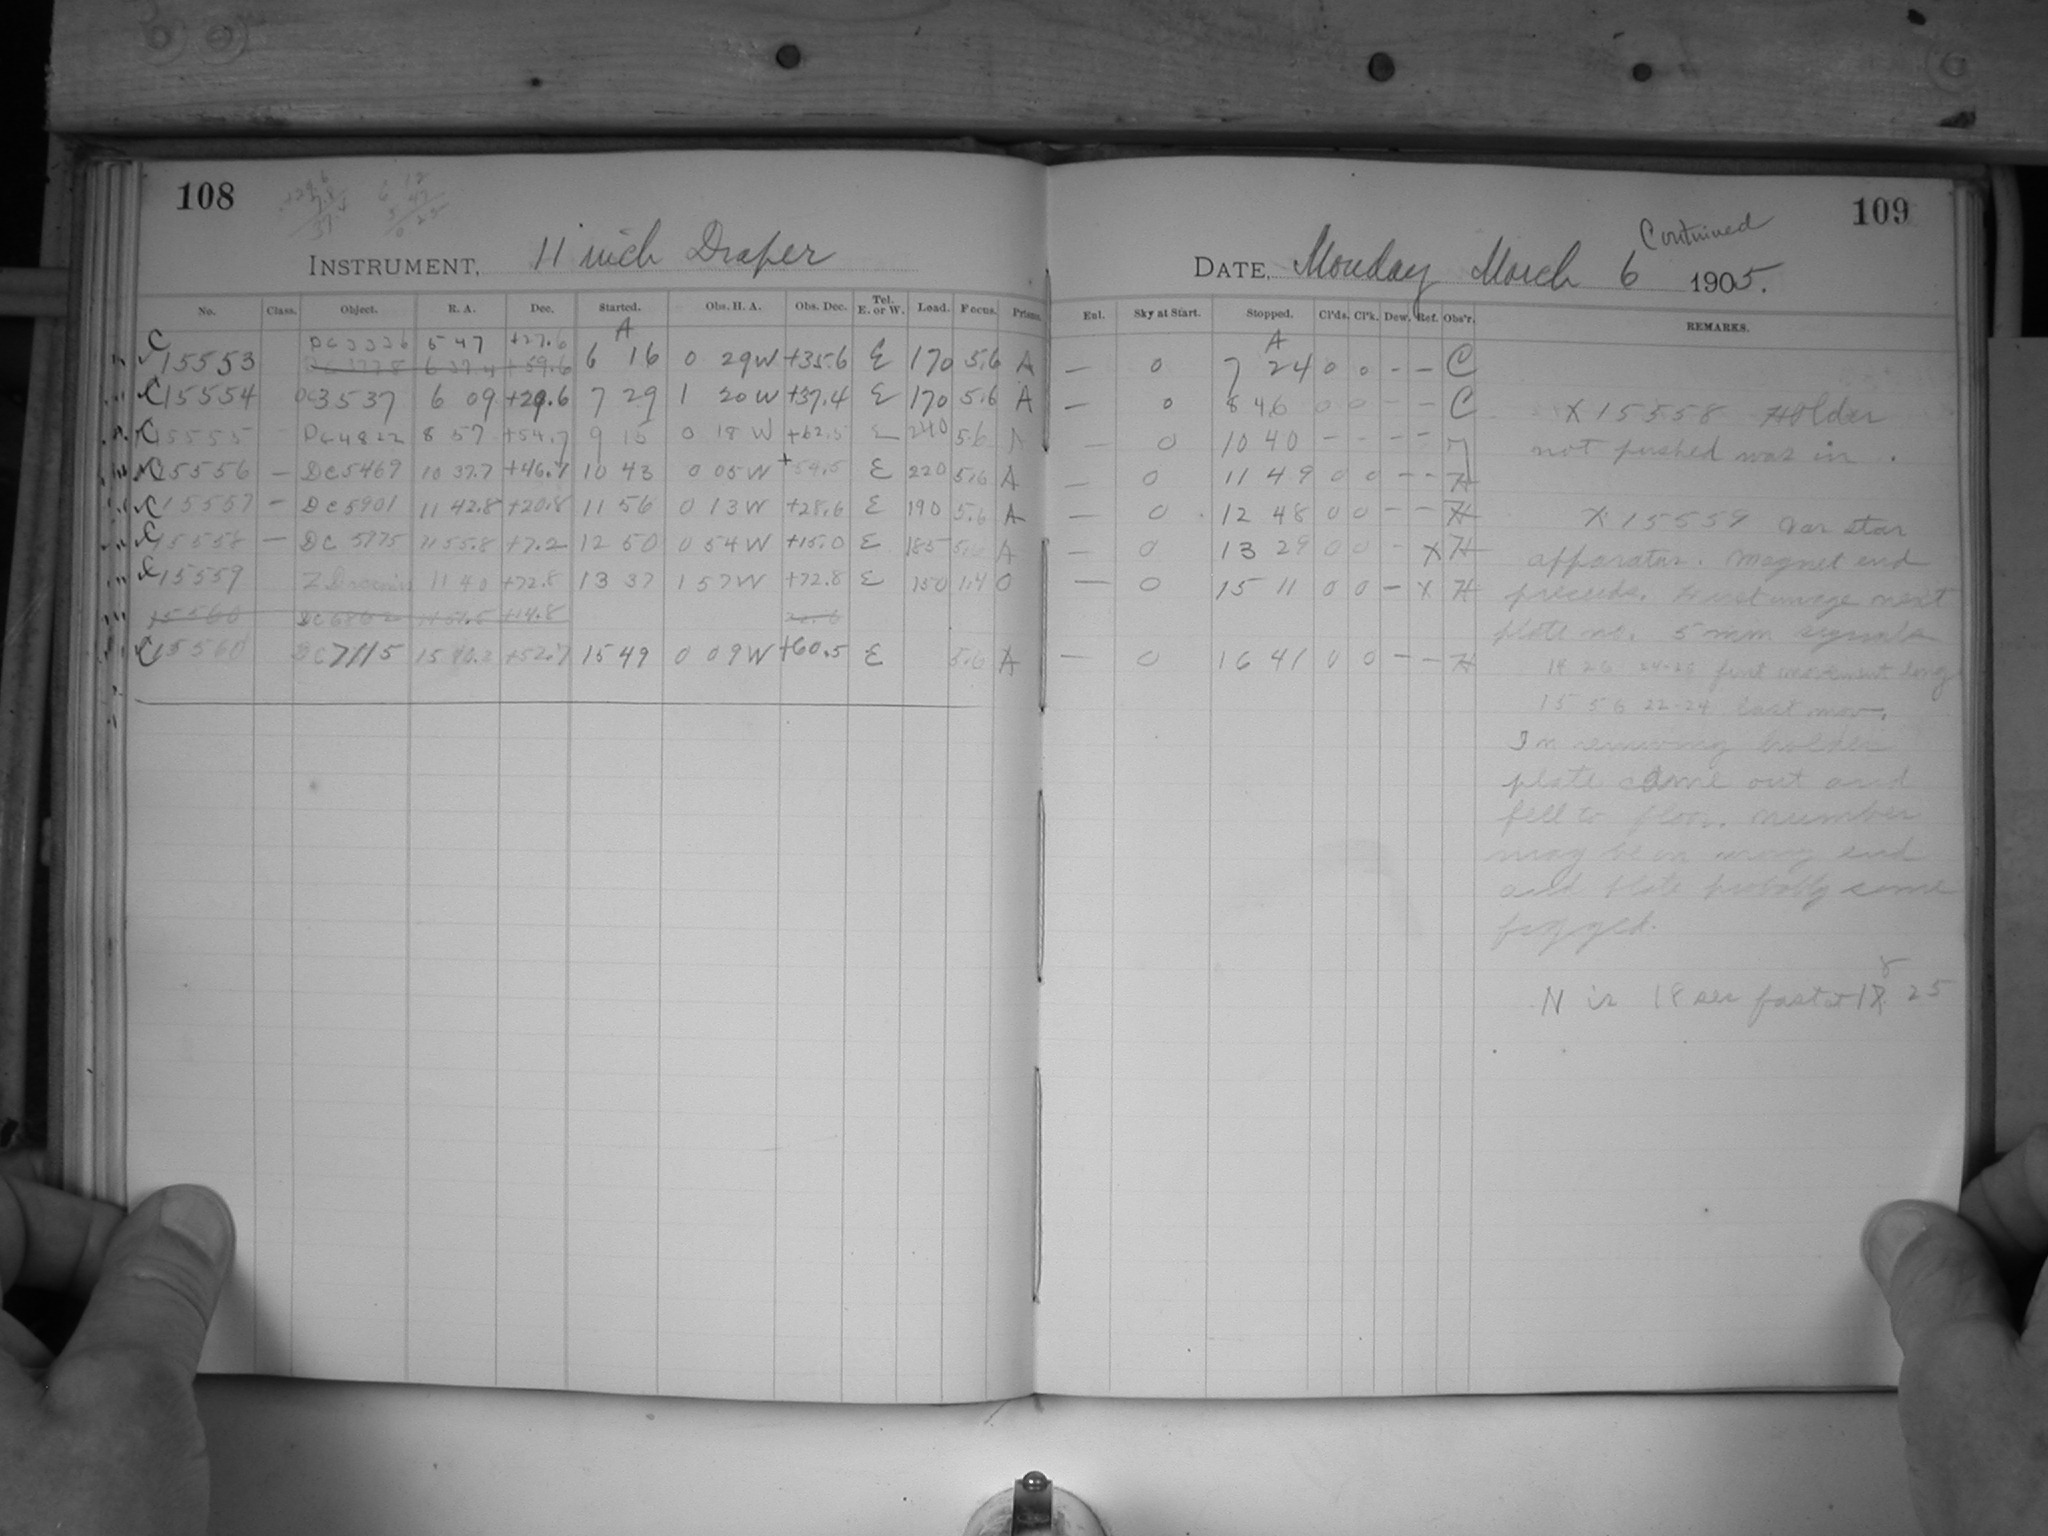 108
INSTRUMENT, 11 inch Draper
No. Class. Object. R. A. Dec. Started. Obs. H. A. Obs. Dec. Tel. E. or W. Load. Focus. Prisms.
DC3336 5 47 +27.6 A
C15553 6 16 0 29W +35.6 E 170 5.6 A
C15554 DC3537 6 09 +29.6 7 29 1 20W +37.4 E 170 5.6 A
C15555 DC4822 8 57 +54.7 9 0 18W +62.5 E 240 5.6
C15556 — DC5469 10 37.7 +46.7 10 43 0 05W + E 220 5.6 A
C15557 — DC5901 11 42.8 +20.8 11 56 0 13W +28.6 E 190 5.6 A
C15558 — DC 5775 11 55.8 +7.2 12 50 0 54W +15.0 E 185 A
C15559 Z Draconis 11 40 +72.8 13 37 1 57W +72.8 E 150 1.4 0
15560 +14.8
C15560 DC7115 +52.7 15 49 0 09W +60.5 E 5.6 A
109
Continued
DATE, Monday March 6 1905.
Enl. Sky at Start. Stopped. Cl'ds. Cl'k. Dew. Ref. Obs'r. REMARKS.
A
— 0 7 24 0 0 - - C
— 0 8 46 0 0 - - C
— 0 10 40 - - - -
— 0 11 49 0 0 - - H
— 0 12 48 0 0 - - H
— 0 13 29 0 0 - X H
— 0 15 11 0 0 - X H
— 0 16 41 0 0 - - H
X 15558 Holder
not pushed was in.
X 15559 var star
apparatus. Magnet end
precede. First image next
plate no. 5 mm signals
14 26 24-26 first movement long
15 5 6 22-24 last mov.
In removing holder
plate came out and
fell to floor. number
may be in wrong end
and plate probably some
fogged.
N is 18 sec fast 25